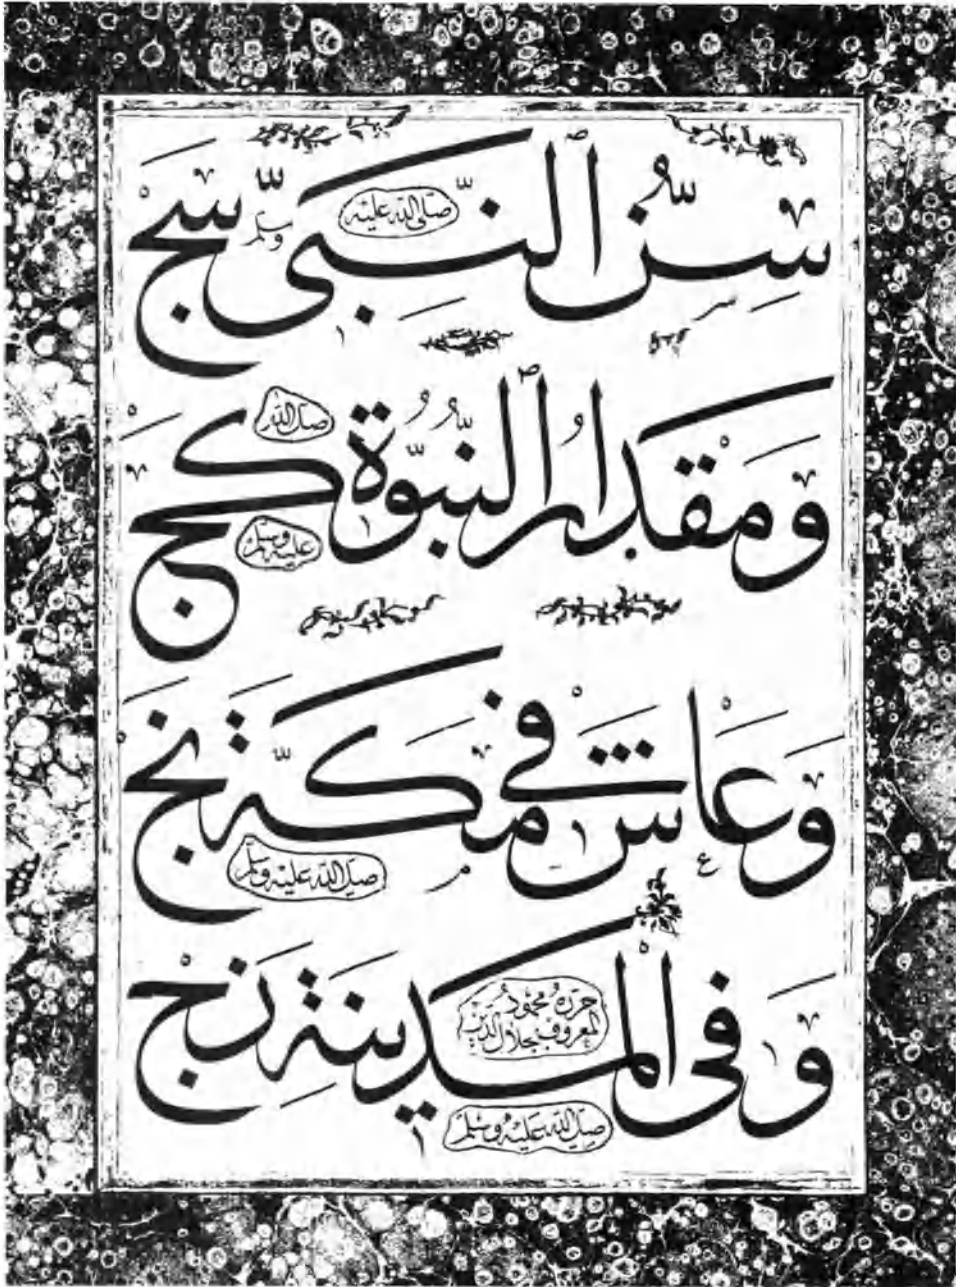 سِنُّ النَّبِيِّ سَجْ
صلى الله عليه وسلم
وَمِقْدَارُ النُّبُوَّةِ كَجْ
صلى الله عليه وسلم
وَعَاشَ فِي مَكَّةَ نَجْ
صلى الله عليه وسلم
وَفِي الْمَدِينَةِ زَجْ
حرره محمود المعروف بجلال الدين
صلى الله عليه وسلم